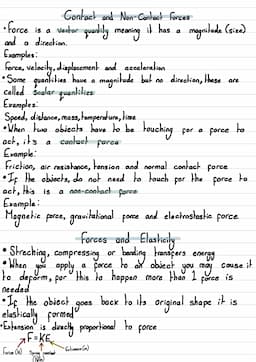 Contact and Non-Contact Forces
•Force is a vector quantity meaning it has a magnitude (size)
and a direction.
Examples:
Force, velocity, displacement and acceleration
•Some quantities have a magnitude but no direction, these are
called scalar quantities
Examples:
Speed, distance, mass, temperature, time
•When two objects have to be touching for a force to
act, its a contact force
Example:
Friction, air resistance, tension and normal contact force
•If the objects, do not need to touch for the force to
act, this is a non-contact force
Example:
Magnetic force, gravitational force and electrostatic force
Forces and Elasticity
•Streching, compressing or bending transfers energy
•When you apply a force to an object you may cause it
to deform, for this to happen more than 1 force is
needed
•If the object goes back to its original shape it is
elastically formed
•Extension is directly proportional to force
F=KE
Force (N) Spring constant (N/m) Extension (m)